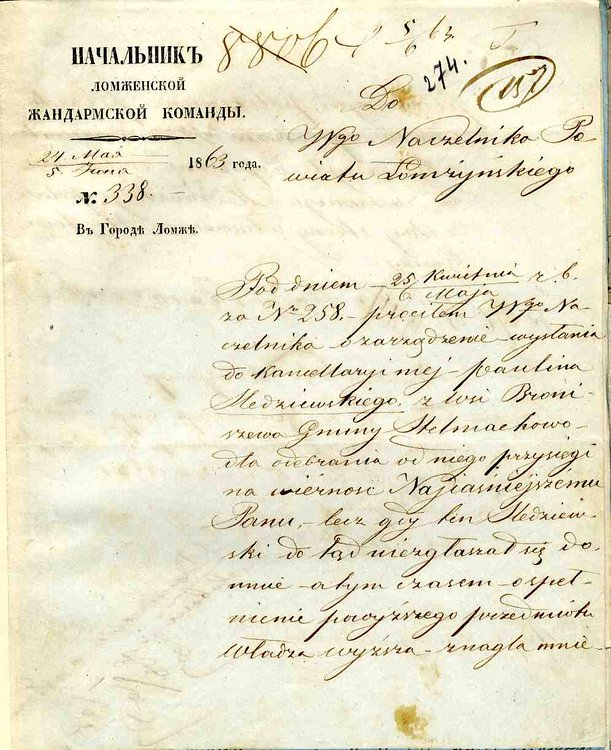 НАЧАЛЬНИКЪ
ЛОМЖЕНСКОЙ
ЖАНДАРМСКОЙ КОМАНДЫ.
24 Мая
5 Iюня
1863 года.
№ 338.
Въ Городѣ Ломжѣ.
8806
5/6 63
274.
157
Do
Wgo Naczelnika Po
wiatu Łomżyńskiego
Pod dniem 25 Kwietnia r. b.
6 Maja
za Nr 258. prosiłem Wgo Na-
czelnika o zarządzenie wysłania
do kancellaryi mej Paulina
Sledziewskiego z wsi Broni-
szewa Gminy Stelmachowo
dla odebrania od niego przysięgi
na wierność Najjaśniejszemu
Panu, lecz gdy ten Sledziew-
ski do tąd niezgłaszał się do
mnie a tym czasem o speł-
nienie powyższego przedmiotu
Władza wyższa znagla mnie